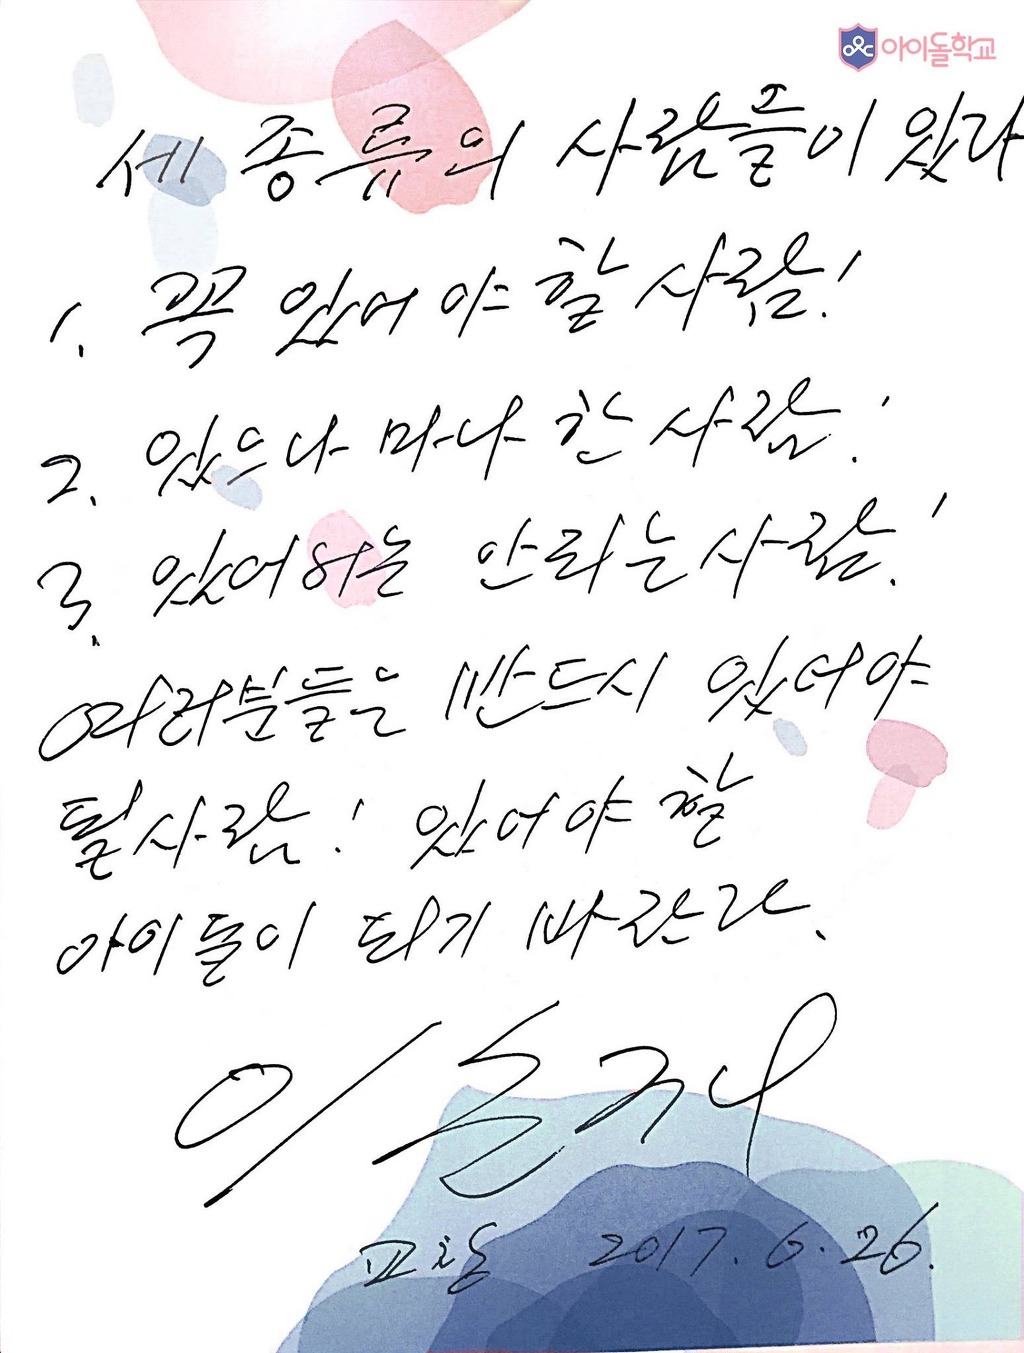 아이돌학교
세 종류의 사람들이 있다
1. 꼭 있어야 할 사람!
2. 있으나 마나 한 사람!
3. 있어서는 안되는 사람!
여러분들은 반드시 있어야
될 사람! 있어야 할
아이들이 되기 바란다.
이순재
교장 2017. 6. 26.